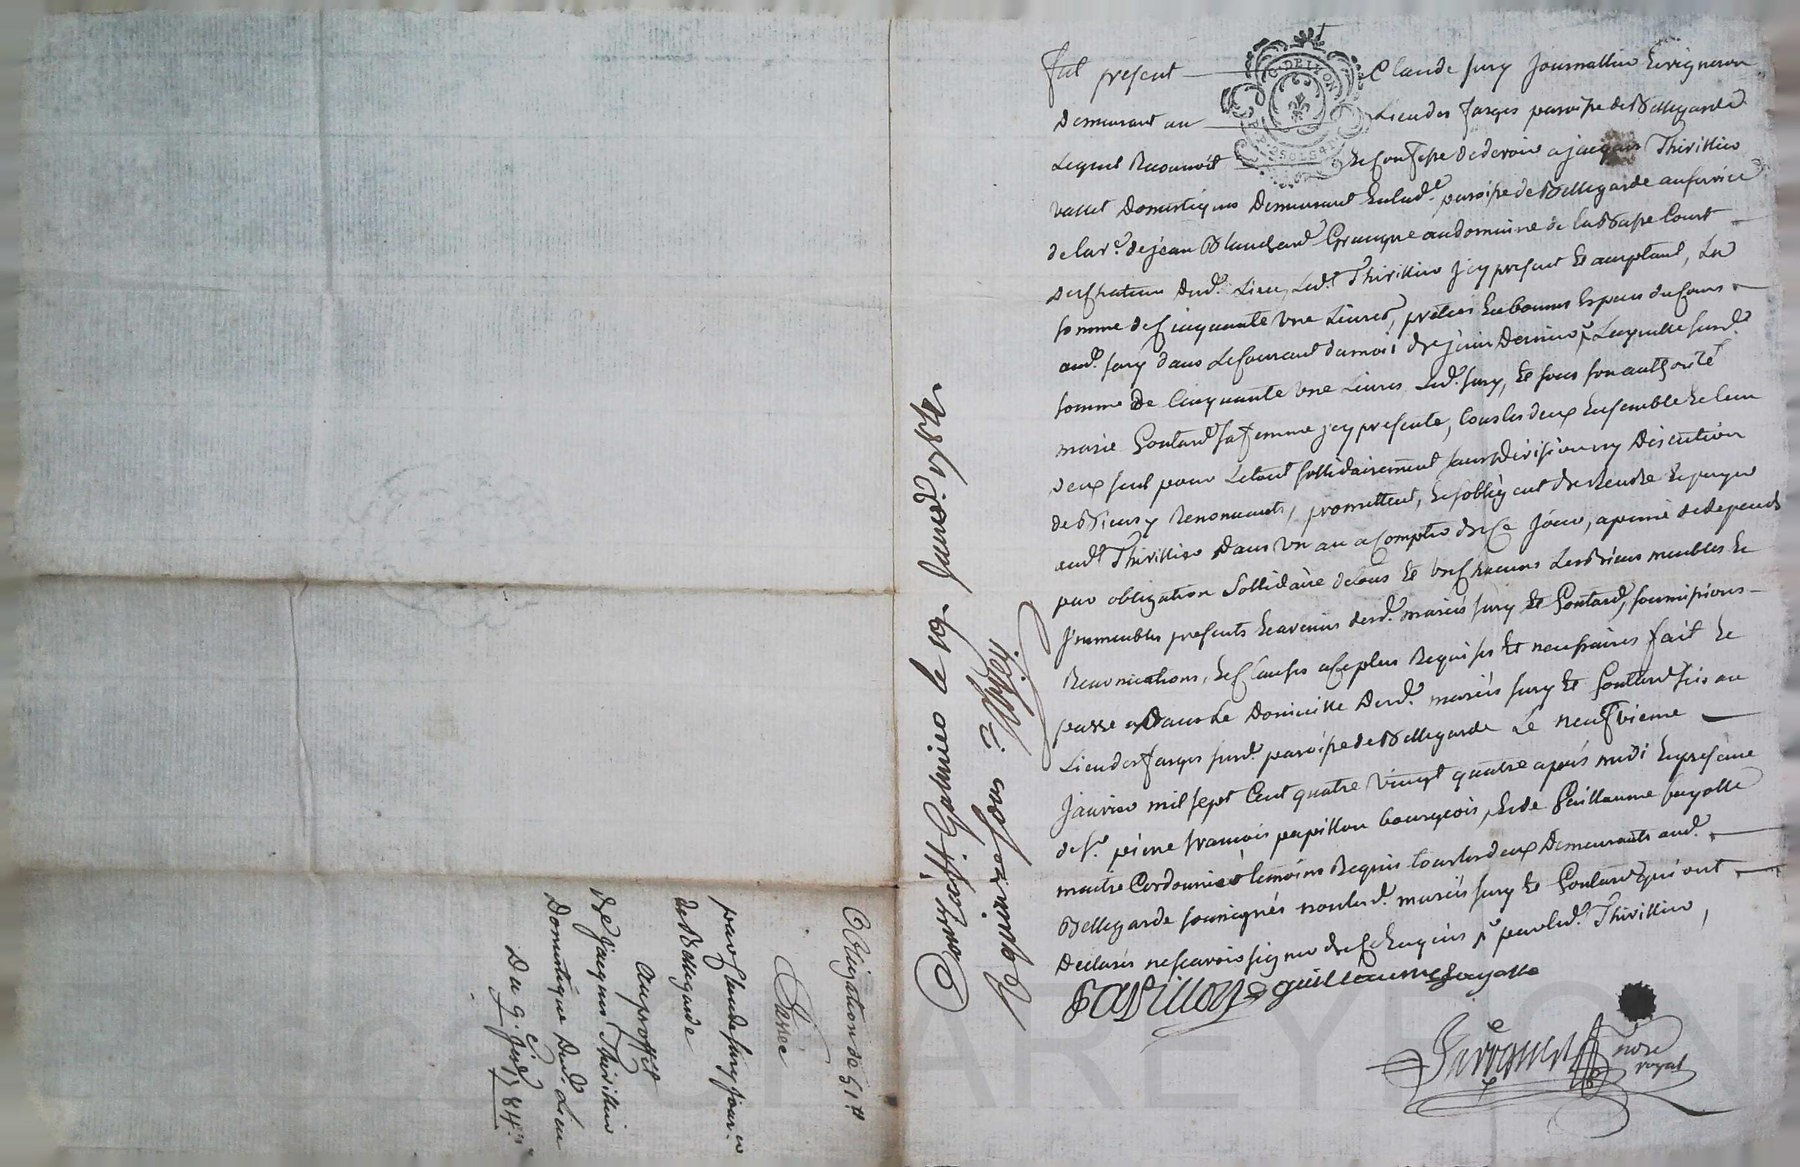 Fut present Claude Jury Journallier Et vigneron
Demeurant au Lieu des farges paroisse de Bellegarde
Lequel Reconnoit Et Confesse de devoir a jacques Thivillier
vallet Domestiques Demeurant En lad.e paroisse de Bellegarde au service
de la v.e de jean Blanchard Grangre au domaine de la Basse Court
dud.t Lieu, Led.t Thivillier jcy present Et acceptant, La
somme de Cinquante Une Livres, pretées En bonnes Especes du Cours
aud.t Jury dans Le Courant du mois de juin Dernier, Laquelle susd.e
somme De Cinquante Une Livres Led.t Jury, Et sous son authorité
marie Goutard sa femme jcy presente, tous les deux Ensemble Et l'un
d'eux seul pour Le tout sollidairement sans division ny Discution
de Biens y Renonceants, promettent, Et s'obligent de Rendre Et payer
aud.t Thivillier Dans Un an a Compter de Ce jour, a peine de depends
par obligation Sollidaire de tous Et Uns Chacuns Leurs Biens meubles Et
jmmeubles presents Et avenir desd.t mariés Jury Et Goutard, soumissions
Renonciations, Et Clauses a Ce plus Requises Et necessaires fait Et
passé Dans Le Domicille Desd.t mariés Jury Et Goutard sis au
Lieu des farges susd.e paroisse de Bellegarde Le neufvieme
janvier mil sept Cent quatre Vingt quatre après midi En presence
de s.r pierre francois papillon bourgeois, Et de Guillaume fayolle
maitre Cordonnier temoins Requis tous les deux Demeurants aud.t
Bellegarde soussignés non lesd.t mariés Jury Et Goutard qui ont
Declarés ne scavoir signer de Ce Enquis ny led.t Thivillier,
PAPillon guilleaume fayolle
no.re
royal
G.DE LYON
Controllé le 19 Janvier 1784
Obligation de 51 tt
Passée
par Claude Jury jour.er
de Bellegarde
Au proffit
De Jacques Thivillier
Domestique Dud.t Lieu
Du 9. j.er 1784
CHAREYRON